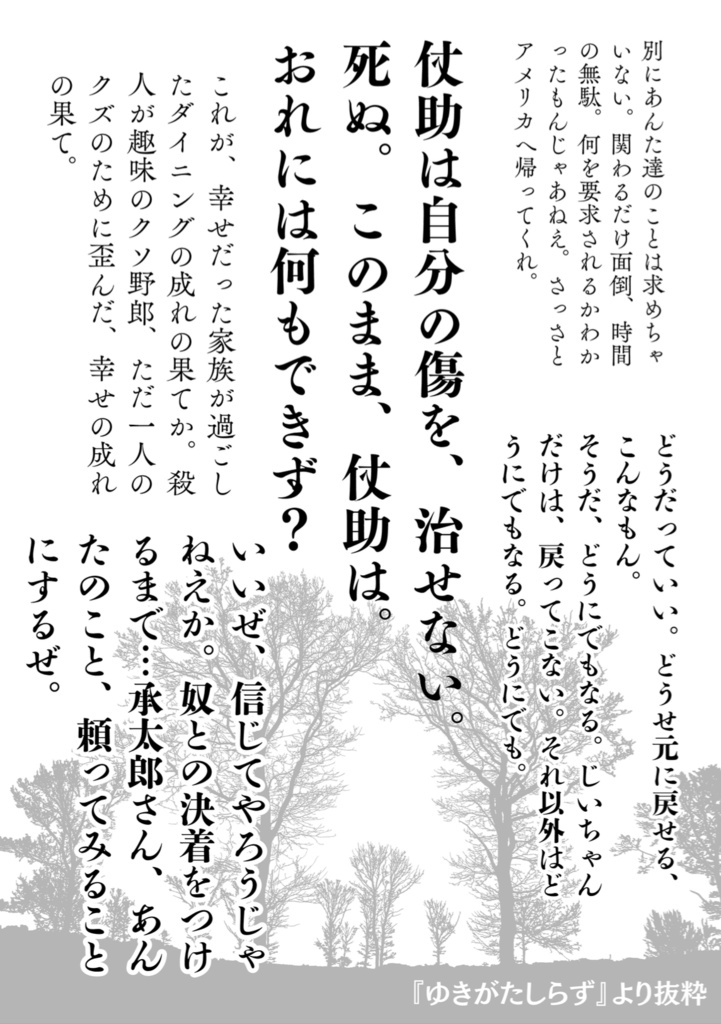 別にあんた達のことは求めちゃ
いない。関わるだけ面倒、時間
の無駄。何を要求されるかわか
ったもんじゃあねえ。さっさと
アメリカへ帰ってくれ。
どうだっていい。どうせ元に戻せる、
こんなもん。
そうだ、どうにでもなる。じいちゃん
だけは、戻ってこない。それ以外はど
うにでもなる。どうにでも。
仗助は自分の傷を、治せない。
死ぬ。このまま、仗助は。
おれには何もできず？
これが、幸せだった家族が過ごし
たダイニングの成れの果てか。殺
人が趣味のクソ野郎、ただ一人の
クズのために歪んだ、幸せの成れ
の果て。
いいぜ、信じてやろうじゃ
ねえか。奴との決着をつけ
るまで…承太郎さん、あん
たのこと、頼ってみること
にするぜ。
『ゆきがたしらず』より抜粋